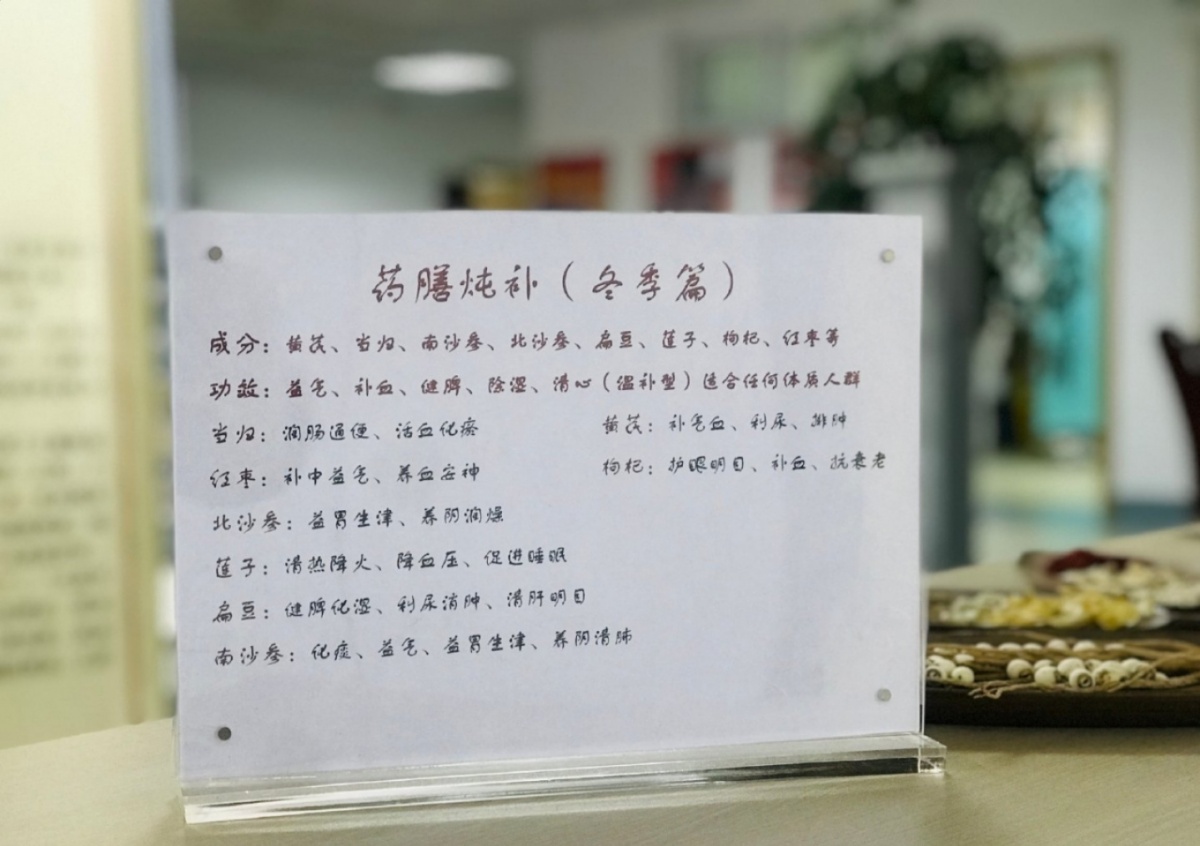 药膳炖补（冬季篇）
成分：黄芪、当归、南沙参、北沙参、扁豆、莲子、枸杞、红枣等
功效：益气、补血、健脾、除湿、清心（温补型）适合任何体质人群
当归：润肠通便、活血化瘀
黄芪：补气血、利尿、排肿
红枣：补中益气、养血安神
枸杞：护眼明目、补血、抗衰老
北沙参：益胃生津、养阴润燥
莲子：清热降火、降血压、促进睡眠
扁豆：健脾化湿、利尿消肿、清肝明目
南沙参：化痰、益气、益胃生津、养阴清肺